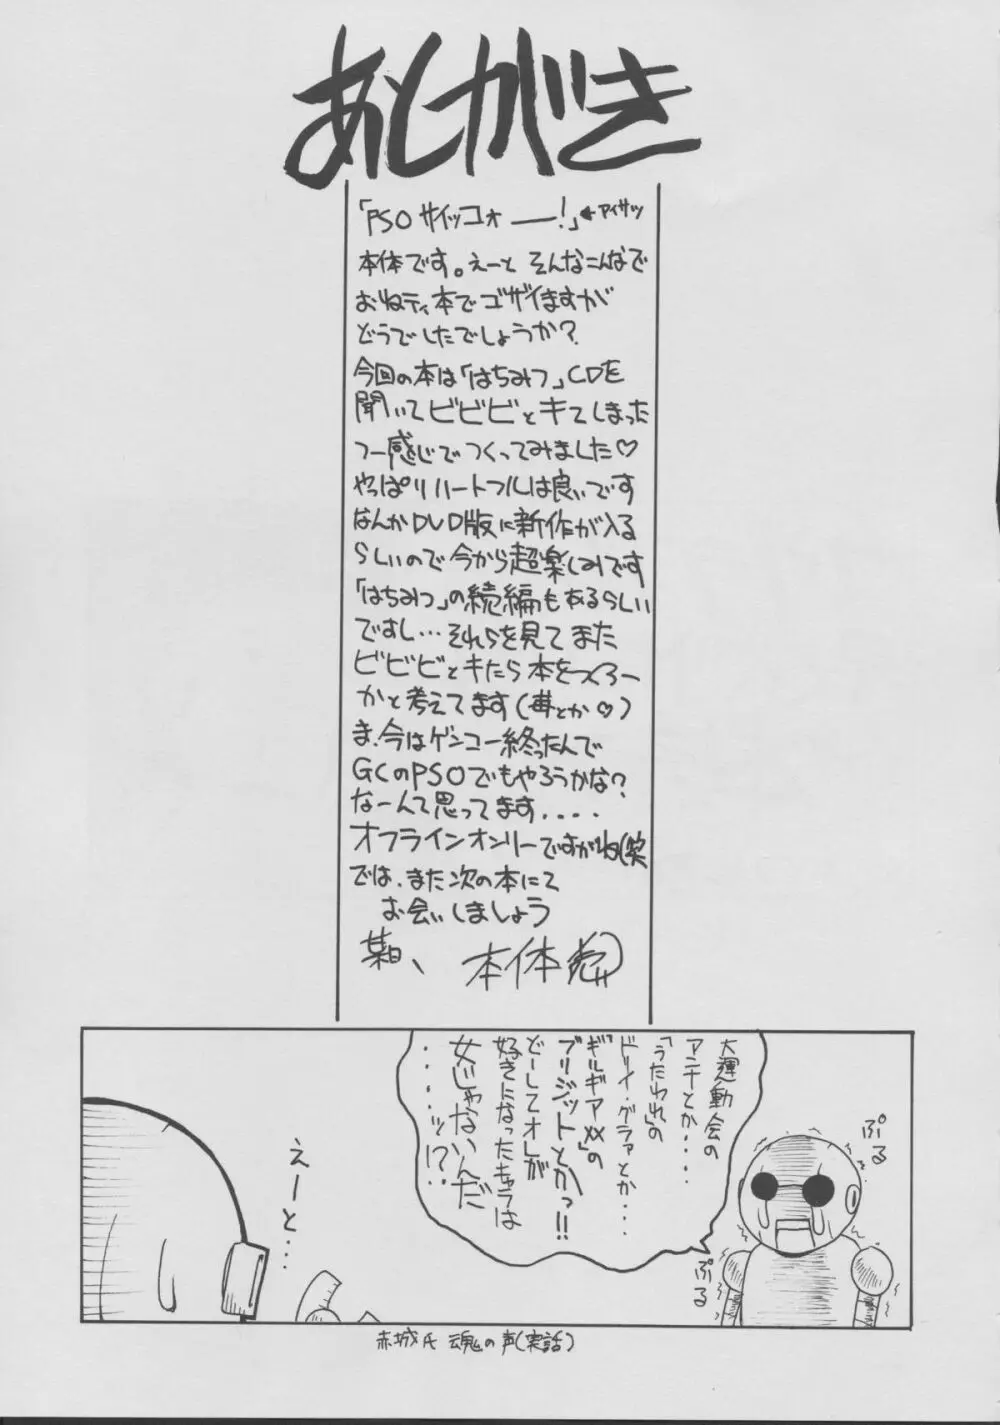 あとがき
「PSO サイッコォ――!」←アイサツ
本体です。えーと そんなこんなで
おねティ本でゴザイますが
どうでしたでしょうか?
今回の本は「はちみつ」CDを
聞いてビビビとキてしまった
つー感じでつくってみました♡
やっぱりハートフルは良いです
なんかDVD版に新作が入る
らしいので今から超楽しみです
「はちみつ」の続編もあるらしい
ですし…それらを見てまた
ビビビとキたら本をつくろー
かと考えてます(苺とか♡)
ま、今はゲンコー終ったんで
GCのPSOでもやろうかな?
なーんて思ってます....
オフラインオンリーですがね(笑
では、また次の本にて
お会いしましょう
某日、 本体
大運動会の
アンナとか....
「うたわれ」の
ドリィ・グラァとか....
「ギルギアXX」の
ブリジットとかっ!!
どーしてオレが
好きになったキャラは
女じゃないんだ
・・・・・ッ!?
ぷる
ぷる
えーと…
赤城氏 魂の声(実話)